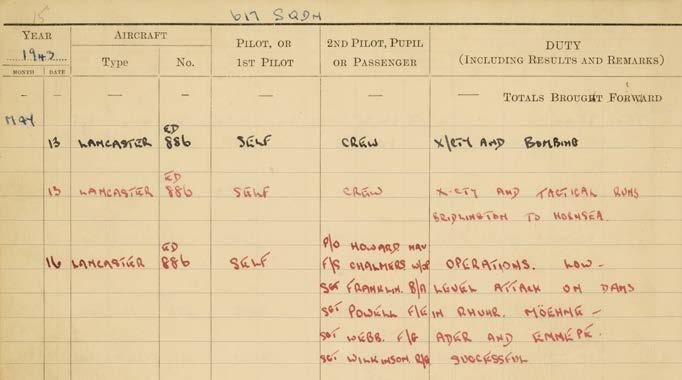 15 617 SQDN
YEAR AIRCRAFT PILOT, OR 2ND PILOT, PUPIL DUTY
1943 Type No. 1ST PILOT OR PASSENGER (INCLUDING RESULTS AND REMARKS)
MONTH DATE
— — — — — — — TOTALS BROUGHT FORWARD
MAY
13 LANCASTER ED 886 SELF CREW X/CTY AND BOMBING
13 LANCASTER ED 886 SELF CREW X-CTY AND TACTICAL RUNS
BRIDLINGTON TO HORNSEA.
P/O HOWARD NAV
16 LANCASTER ED 886 SELF F/S CHALMERS W/OP OPERATIONS. LOW-
SGT FRANKLIN. B/A LEVEL ATTACK ON DAMS
SGT POWELL F/E IN RHUHR. MÖEHNE -
SGT WEBB. F/G ADER AND ENNEPE.
SGT WILKINSON. R/G SUCCESSFUL